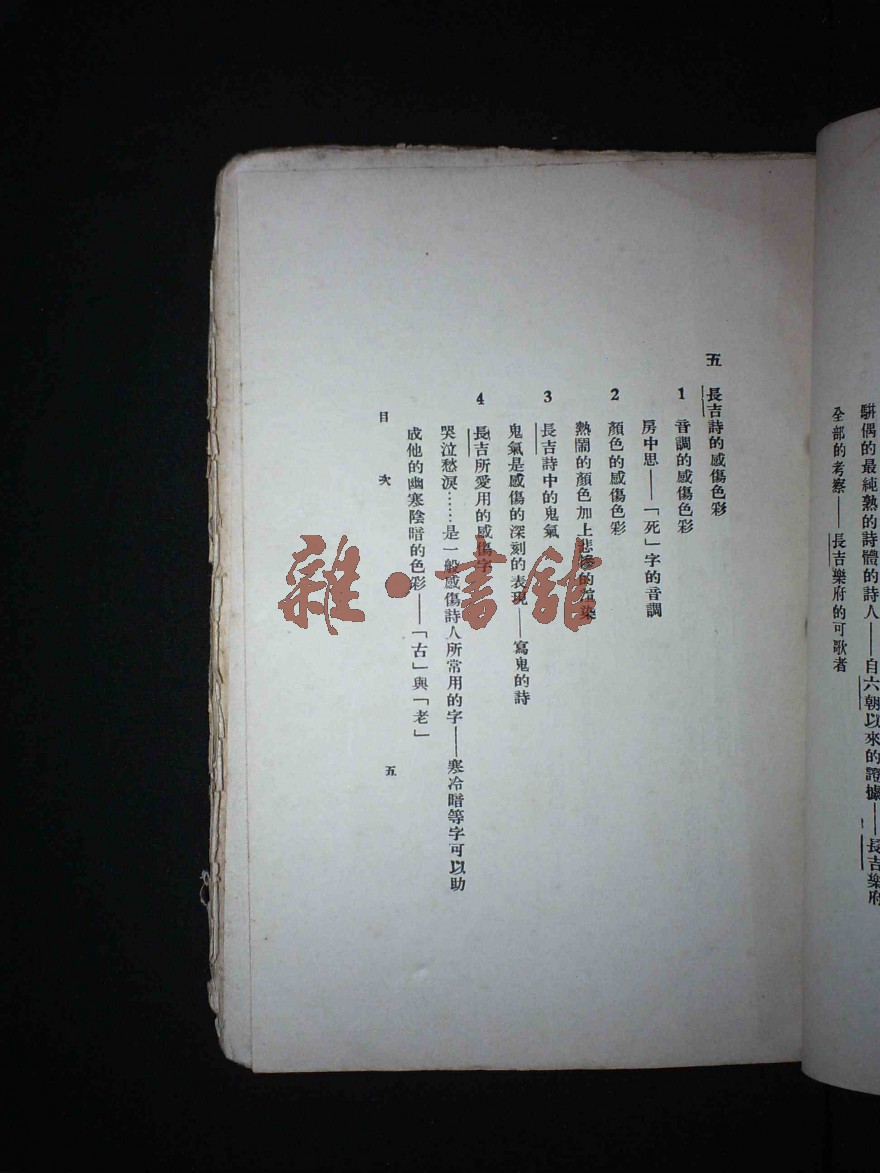 駢偶的最純熟的詩體的詩人——自六朝以來的證據——長吉樂府
全部的考察——長吉樂府的可歌者
五 長吉詩的感傷色彩
1 音調的感傷色彩
房中思——「死」字的音調
2 顏色的感傷色彩
熱鬧的顏色加上悲慘的渲染
3 長吉詩中的鬼氣
鬼氣是感傷的深刻的表現——寫鬼的詩
4 長吉所愛用的感傷字
哭泣愁淚……是一般感傷詩人所常用的字——寒冷暗等字可以助
成他的幽寒陰暗的色彩——「古」與「老」
目次
五
雜·書館